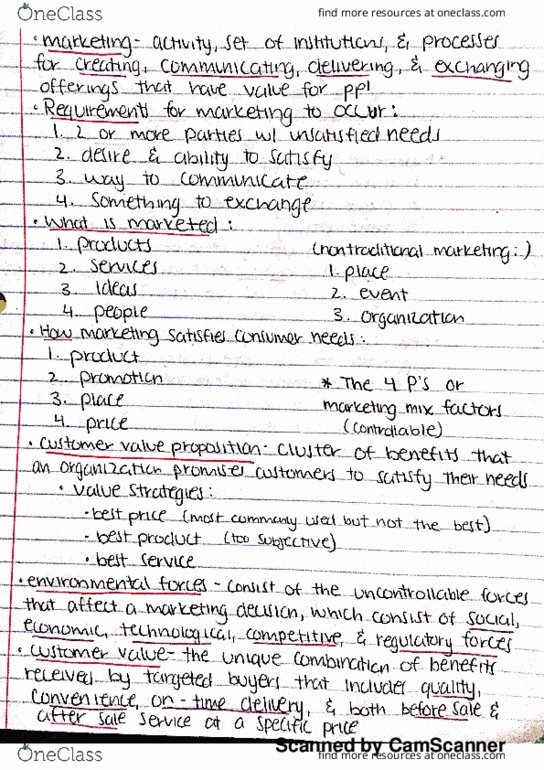 OneClass
find more resources at oneclass.com
• marketing - activity, set of institutions, & processes
for creating, communicating, delivering, & exchanging
offerings that have value for ppl
• Requirements for marketing to occur:
1. 2 or more parties w/ unsatisfied needs
2. desire & ability to satisfy
3. way to communicate
4. something to exchange
• What is marketed:
1. products
2. services
3. ideas
4. people
(nontraditional marketing:)
1. place
2. event
3. organization
• How marketing satisfies consumer needs:
1. product
2. promotion
3. place
4. price
* The 4 P's or
marketing mix factors
(controllable)
• customer value proposition - cluster of benefits that
an organization promises customers to satisfy their needs
• value strategies:
• best price (most commonly used but not the best)
• best product (too subjective)
• best service
• environmental forces - consist of the uncontrollable forces
that affect a marketing decision, which consist of social,
economic, technological, competitive, & regulatory forces
• customer value - the unique combination of benefits
received by targeted buyers that includes quality,
convenience, on-time delivery, & both before sale &
after sale service at a specific price
Scanned by CamScanner
OneClass
find more resources at oneclass.com